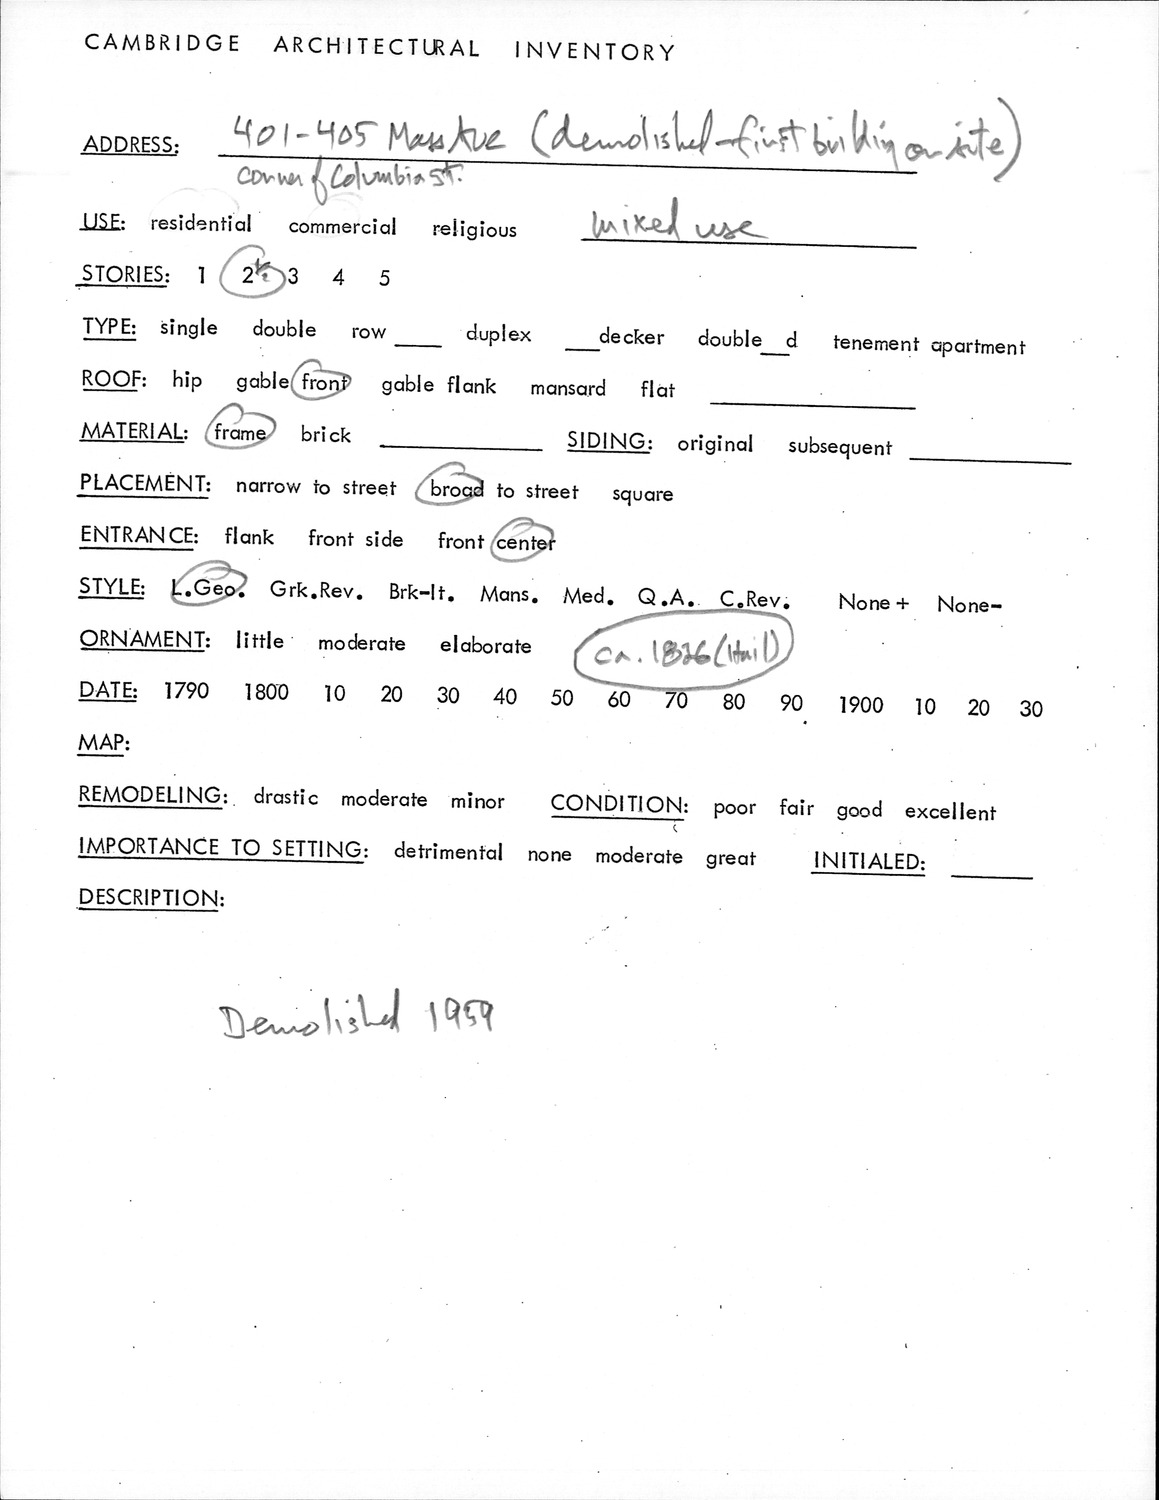 CAMBRIDGE ARCHITECTURAL INVENTORY
ADDRESS: 401-405 Mass Ave (demolished-first building on site)
corner of Columbia St.
USE: residential commercial religious mixed use
STORIES: 1 2½ 3 4 5
TYPE: single double row ____ duplex ___decker double__d tenement apartment
ROOF: hip gable front gable flank mansard flat
MATERIAL: frame brick ____ SIDING: original subsequent ____
PLACEMENT: narrow to street broad to street square
ENTRANCE: flank front side front center
STYLE: L.Geo. Grk.Rev. Brk-It. Mans. Med. Q.A. C.Rev. None+ None-
ORNAMENT: little moderate elaborate ca. 1826 (Hail)
DATE: 1790 1800 10 20 30 40 50 60 70 80 90 1900 10 20 30
MAP:
REMODELING: drastic moderate minor CONDITION: poor fair good excellent
IMPORTANCE TO SETTING: detrimental none moderate great INITIALED: ____
DESCRIPTION:
Demolished 1959